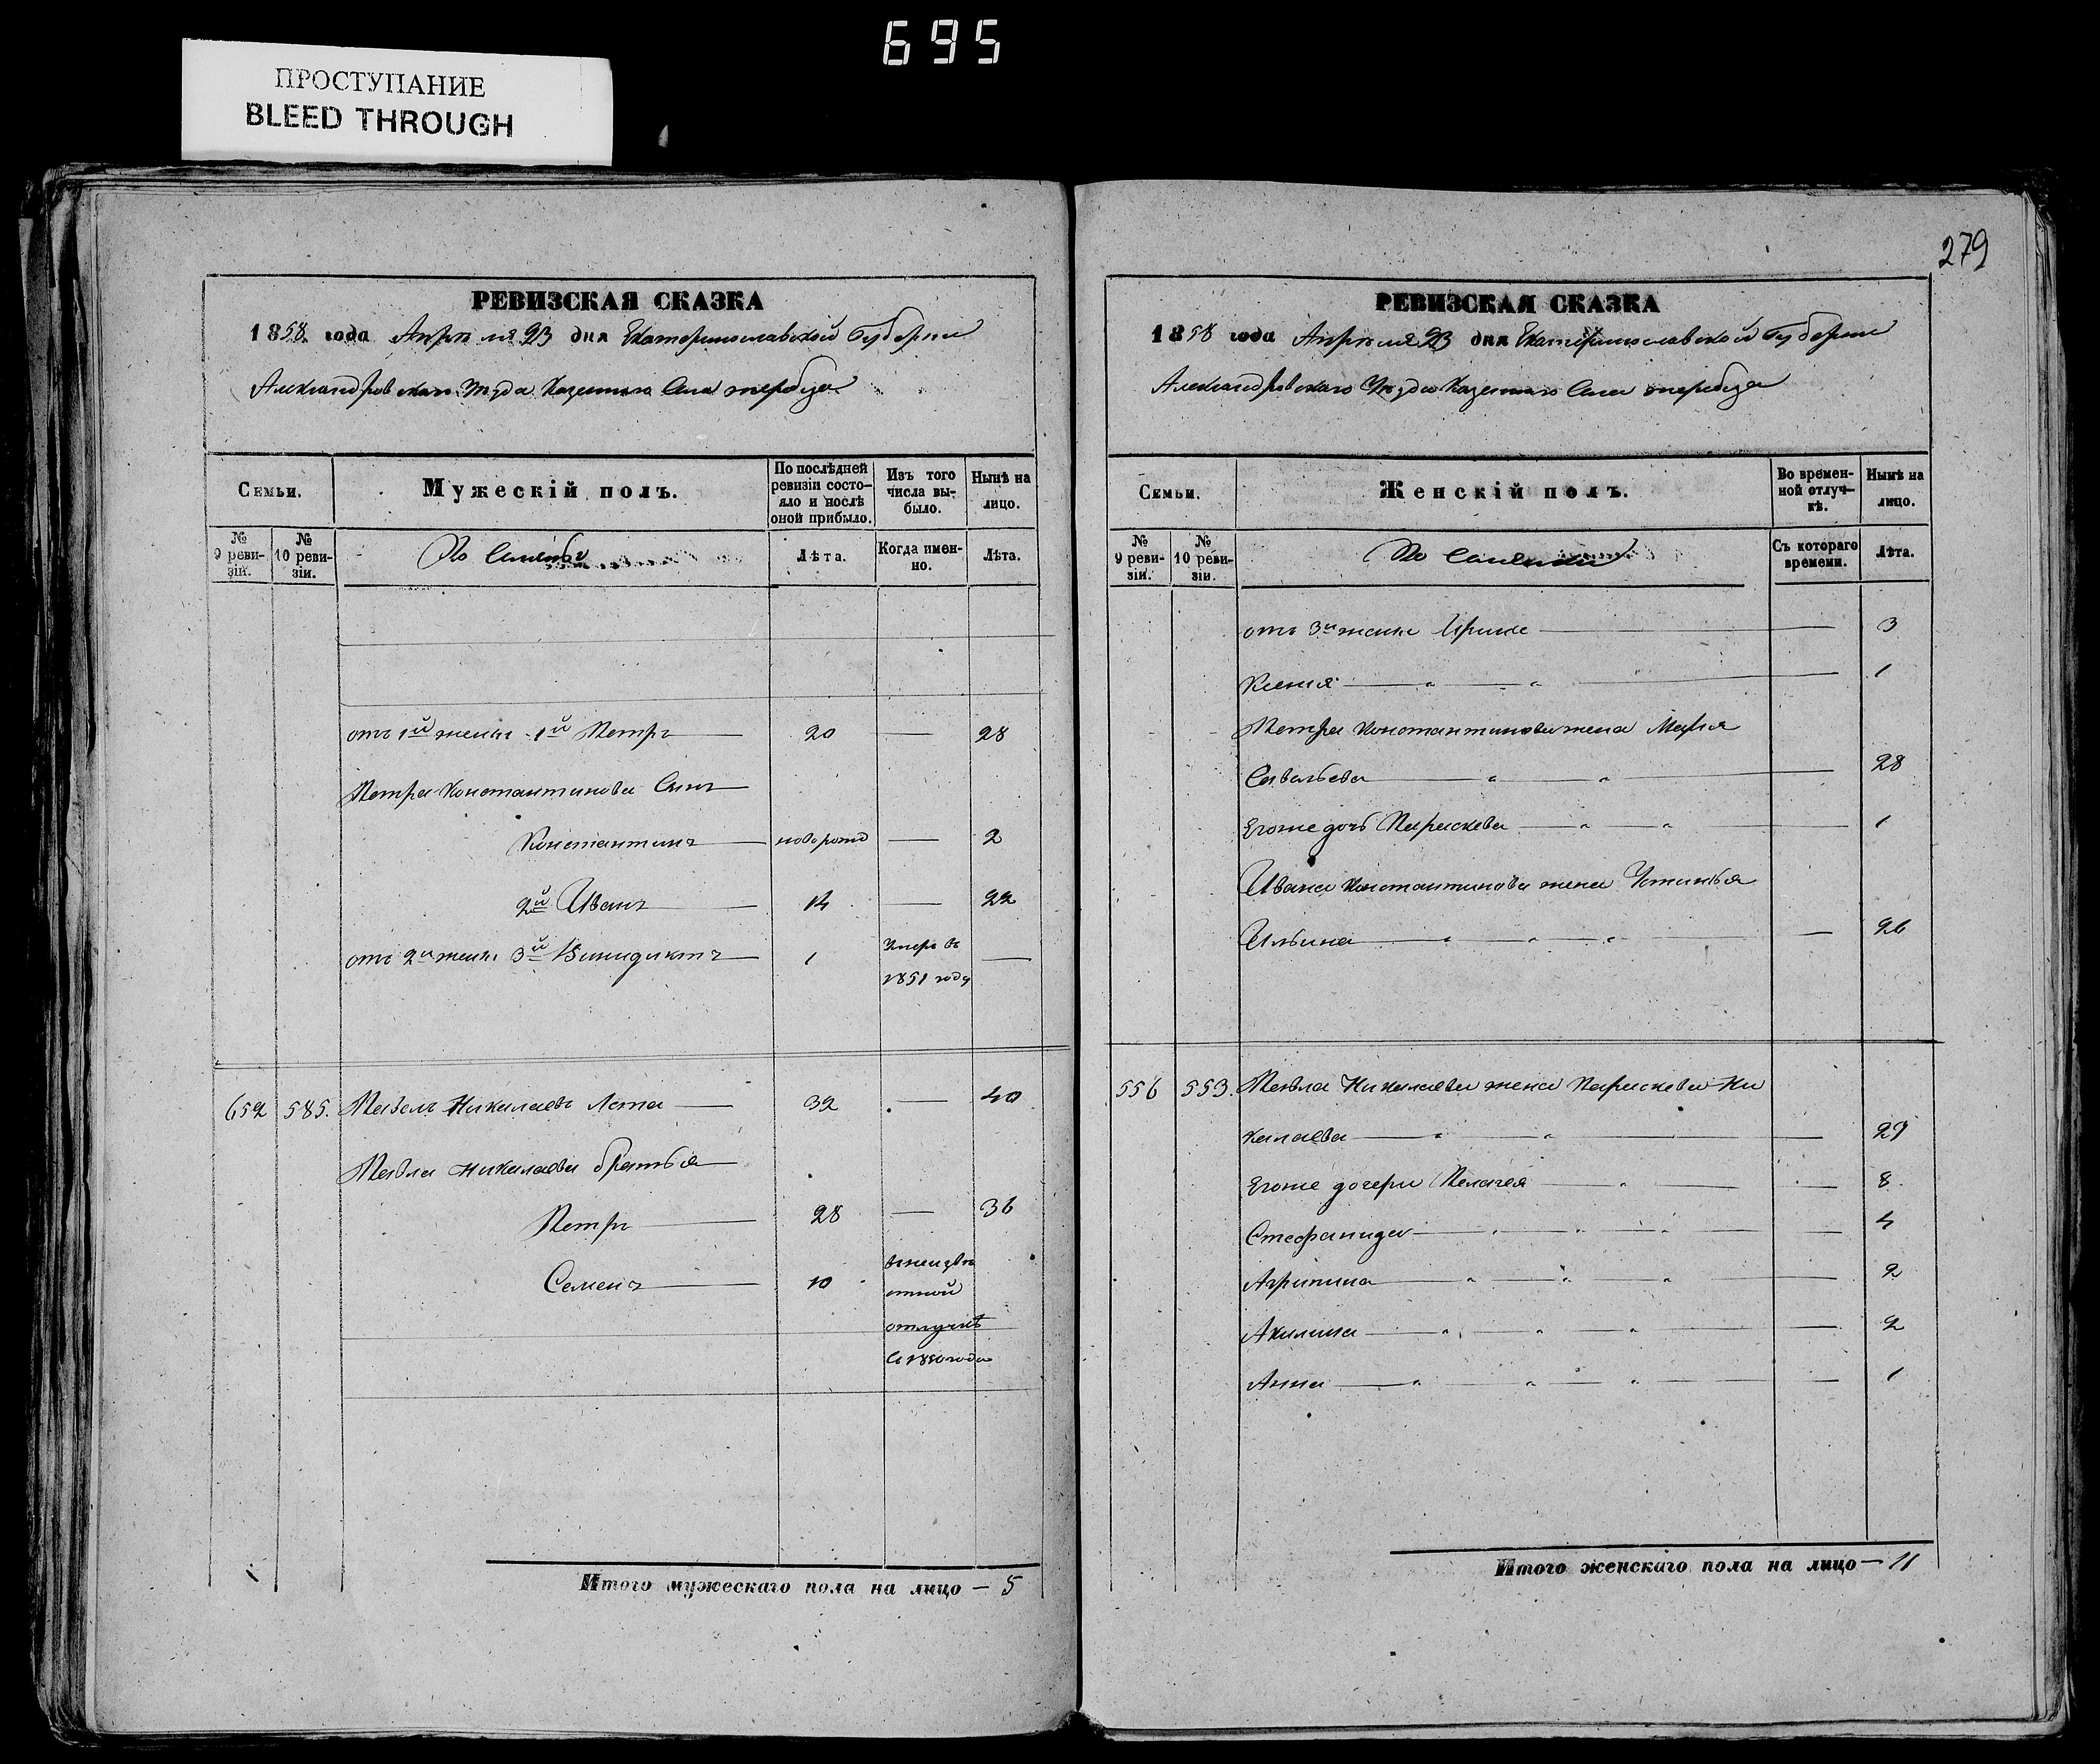 695
ПРОСТУПАНИЕ
BLEED THROUGH
РЕВИЗСКАЯ СКАЗКА
1858 года Апрѣля 23 дня Екатеринославской Губернии
Александровскаго Уѣзда Казеннаго Села
Семьи.
Мужескій полъ.
По послѣдней ревизіи состояло и послѣ оной прибыло.
Изъ того числа выбыло.
Нынѣ на лицо.
№ 9 ревизіи.
№ 10 ревизіи.
Лѣта.
Когда именно.
Лѣта.
отъ 1й жены 1й Петръ 20 — 28
Петра Константинова Сынъ
Константинъ новорожд — 2
2й Иванъ 14 — 22
отъ 2й жены 3й Венидиктъ 1 Умеръ въ 1851 году —
652 585. Павелъ Николаевъ 32 — 40
Павла Николаева братья
Петръ 28 — 36
Семенъ 10 въ неизвѣстной отлучкѣ
съ 1850 года
Итого мужескаго пола на лицо — 5
279
РЕВИЗСКАЯ СКАЗКА
1858 года Апрѣля 23 дня Екатеринославской Губернии
Александровскаго Уѣзда Казеннаго Села
Семьи.
Женскій полъ.
Во временной отлучкѣ.
Нынѣ на лицо.
№ 9 ревизіи.
№ 10 ревизіи.
Съ котораго времени.
Лѣта.
отъ 3й жены Ирина — 3
Ксения — " — " — 1
Петра Константинова жена Марья
Савельева — " — " — 28
Егоже дочь Параскева — " — " — 1
Ивана Константинова жена Устинья
Ильина — " — " — " — 26
556 553. Павла Николаева жена Параскева Ни
калаева — " — " — 29
Егоже дочери Пелагея — " — 8
Стефанида — " — " — " — 4
Агрипина — " — " — " — 2
Акилина — " — " — " — 2
Анна — " — " — " — 1
Итого женскаго пола на лицо — 11